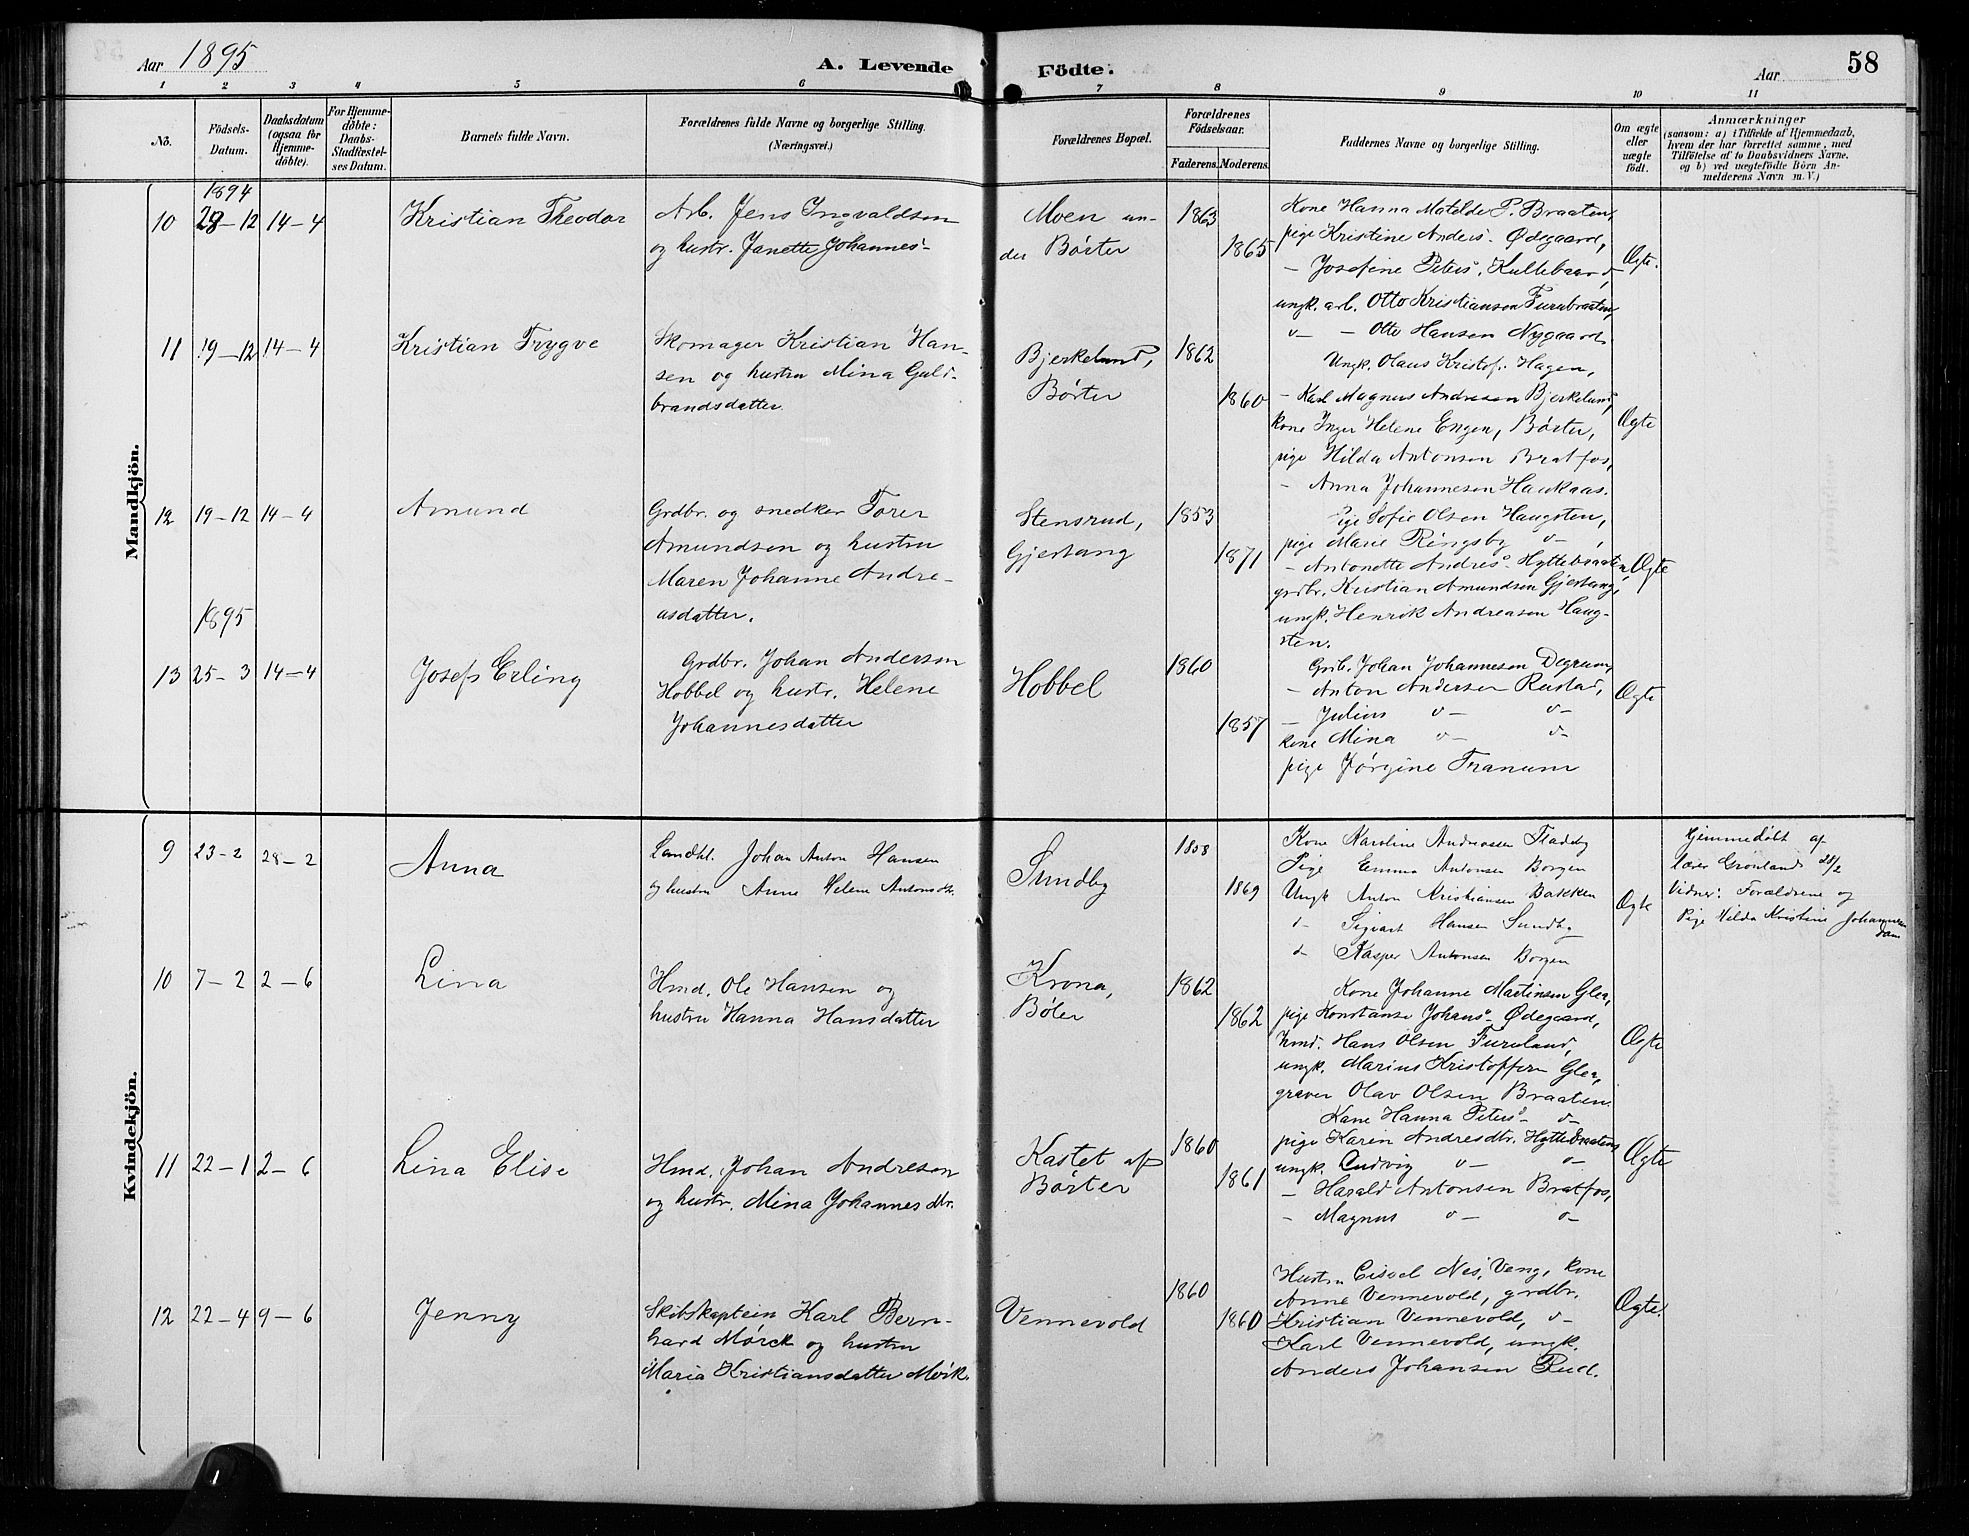 Aar 1895
A. Levende Födte.
Aar
58
1 2 3 4 5 6 7 8 9 10 11
No.
Födsels-
Datum.
Daabsdatum
(ogsaa for
Hjemme-
döbte).
For Hjemme-
döbte:
Daabs-
Stadfæstel-
ses Datum.
Barnets fulde Navn.
Forældrenes fulde Navne og borgerlige Stilling.
(Næringsvei.)
Forældrenes Bopæl.
Forældrenes
Födselsaar.
Faderens. Moderens.
Faddernes Navne og borgerlige Stilling.
Om ægte
eller
uægte
födt.
Anmærkninger
(saasom: a) i Tilfælde af Hjemmedaab,
hvem der har forrettet samme, med
Tilföielse af to Daabsvidners Navne.
og b) ved uægtefödte Börn An-
melderens Navn m. V.)
Mandkjön.
1894
10 28-12 14-4
Kristian Theodor
Arb. Jens Ingvaldsen
og hustr. Janette Johannes-
Moen un-
der Børter
1863
1865
Kone Hanna Matelde P. Braaten,
pige Kristine Anders- Ødegaard,
- Josefine Peters.
ungk. arb. Otto Kristiansen Furubraaten,
d - Otto Hansen Nygaard.
Ægte.
11 19-12 14-4
Kristian Trygve
Skomager Kristian Han-
sen og hustru Mina Guld-
brandsdatter.
Bjerkelund,
Børter
1862
1860
Ungk. Olaus Kristof. Hagen,
- Karl Magnus Andresen Bjerkelund,
kone Inger Helene Engen, Børter,
pige Hilda Antonsen Bratfos,
- Anna Johannesen Haukaas.
Ægte
12 19-12 14-4
Amund
Grdbr. og snedker Torer
Amundsen og hustru
Maren Johanne Andre-
asdatter.
Stensrud,
Gjestang
1853
1871
Pige Sofie Olsen Haugsten,
pige Marie Ringsby d-,
- Antonette Andrs- Hyttebraaten
grdbr. Kristian Amundsen Gjestang,
ungk. Henrik Andreasen Haug-
sten.
Ægte
1895
13 25-3 14-4
Josef Erling
Grdbr. Johan Anderson
Hobbel og hustr. Helene
Johannesdatter
Hobbel
1860
1857
Grb. Johan Johannesen Degrum
- Anton Andersen Rustad,
- Julius d- d-
kone Mina d- d-
pige Jørgine Tranum
Ægte
Kvindekjön.
9 23-2 28-2
Anna
Landhl. Johan Anton Hansen
og hustru Anne Helene Antonsdtr.
Sundby
1858
1869
Kone Karoline Andreassen Fladeby
Pige Emma Antonsen Borgen
Ungk Anton Kristiansen Bakken
d- Sigvart Hansen Sundby
d- Kasper Antonsen Borgen
Ægte
Hjemmedøbt af
lærer Grønland 28/2
Vidner: Forældrene og
Pige Hilda Kristine Johannesen
Dam
10 7-2 2-6
Lina
Hmd. Ole Hansen og
hustru Hanna Hansdatter
Krona,
Bøler
1862
1862
Kone Johanne Martinsen Glea,
pige Konstanse Johans- Ødegaard,
hmd. Hans Olsen Fureland,
ungk. Marius Kristoffersen Glea,
graver Olav Olsen Braaten.
Ægte
11 22-1 2-6
Lina Elise
Hmd. Johan Andresen
og hustr. Mina Johannesdtr.
Kastet af
Børter
1860
1861
Kone Hanna Peters- d-
pige Karen Andresdtr. Hyttebraaten,
ungk. Ludvig d- d-
- Harald Antonsen Bratfos,
- Magnus d- d-
Ægte
12 22-4 9-6
Jenny
Skibskaptein Karl Bern-
hard Mørck og hustru
Maria Kristiansdatter Mørk.
Vennevold
1860
1860
Hustru Nes, Veng, kone
Anne Vennevold, grdbr.
Kristian Vennevold, d-
Karl Vennevold, ungk.
Anders Johansen Rud.
Ægte.